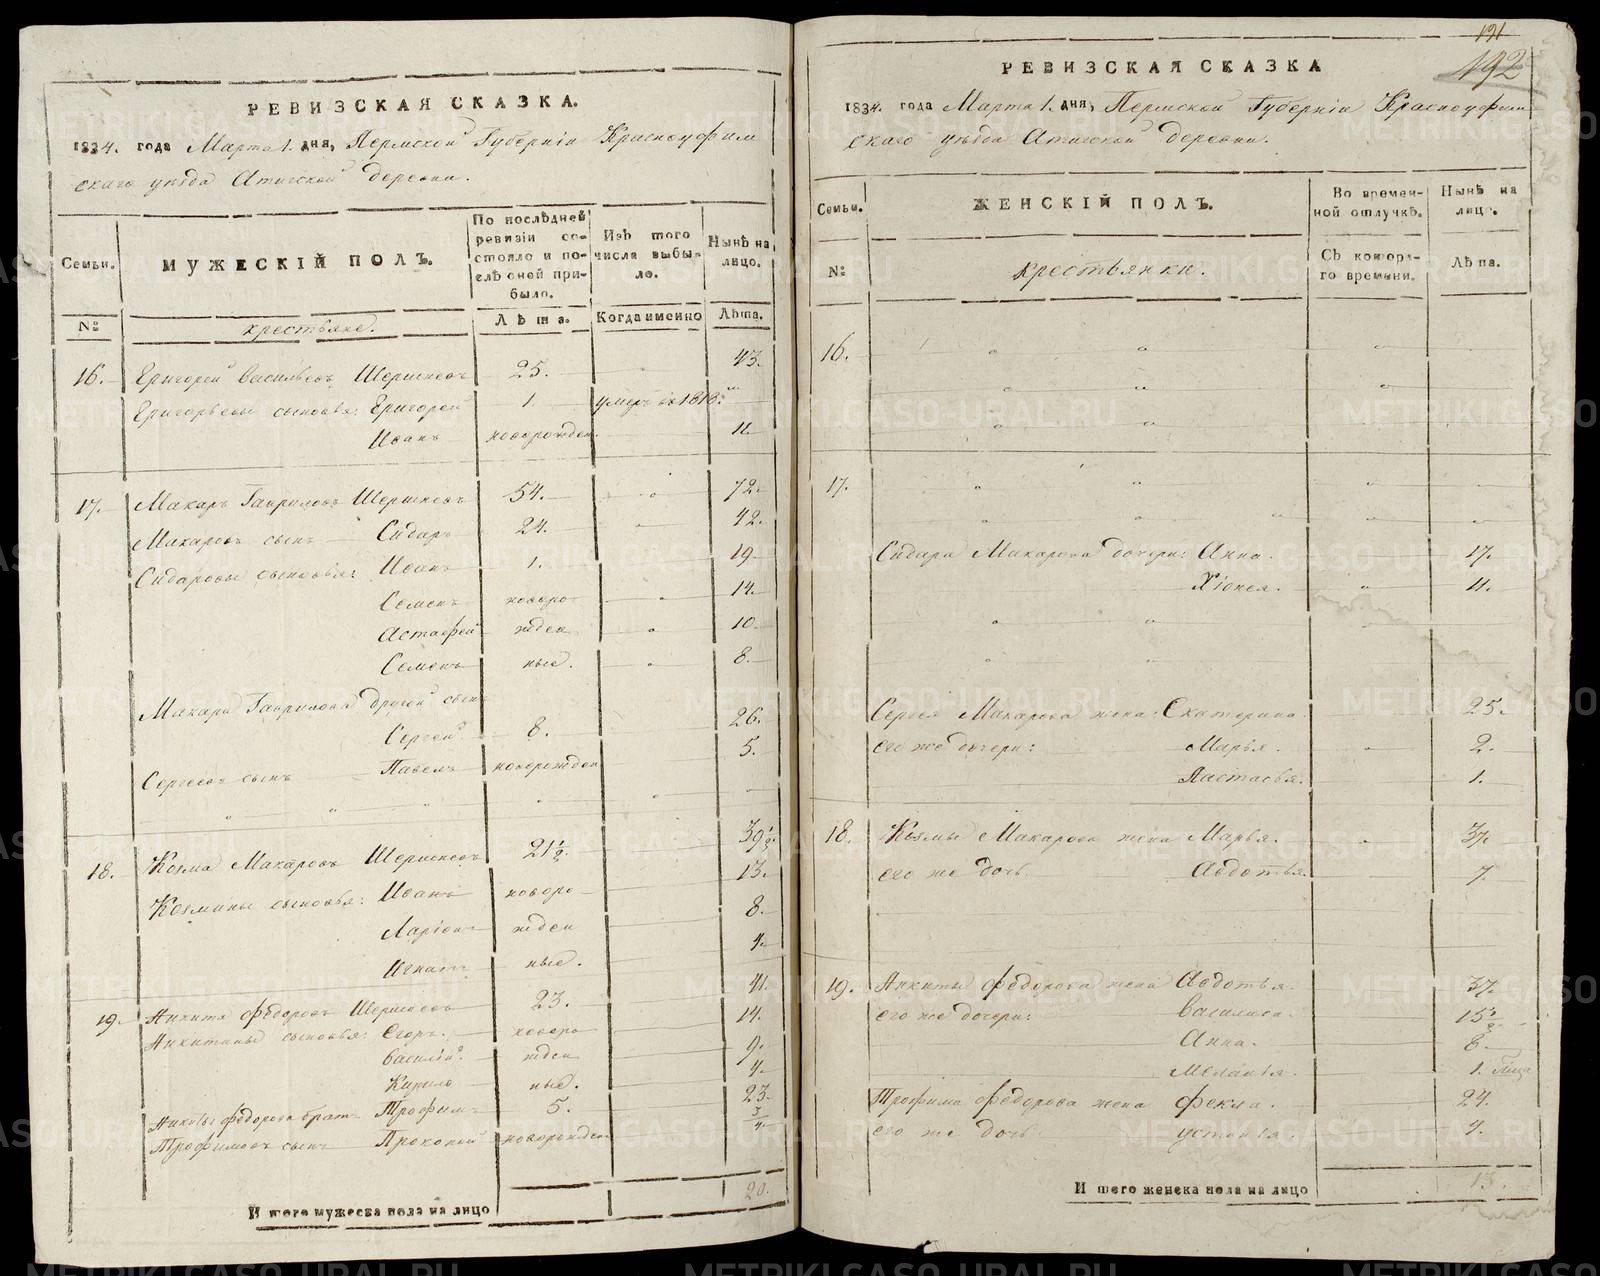 РЕВИЗСКАЯ СКАЗКА.
1834. года Марта 1. дня, Пермской Губернiи Красноуфим
скаго уѣзда Атигской деревни.
Семьи.
МУЖЕСКIЙ ПОЛЪ.
По послѣдней ревизiи состояло и послѣ оней прибыло.
Изъ того числа выбыло.
Нынѣ на лицо.
№
крестьяне.
Лѣта.
Когда именно
Лѣта.
16. Григорей Васильевъ Шершневъ 25. 43.
Григорьевы сыновья: Григорей 1. умеръ въ 1818.
Иванъ новорожден. 11.
17. Макаръ Гавриловъ Шершневъ 54. 72.
Макаровъ сынъ Сидаръ 24. 42.
Сидаровы сыновья: Иванъ 1. 19
Семенъ новоро 14.
Астафей жден 10
Семенъ ные. 8.
Макара Гаврилова другой сынъ
Сергей 8. 26.
Сергеевъ сынъ Павелъ новорожден 5.
18. Козма Макаровъ Шершневъ 21 1/2. 39 1/2.
Козмины сыновья: Иванъ новоро 13.
Ларiонъ жден 8.
Игнатъ ные. 4.
19. Никита Федоровъ Шершневъ 23. 41.
Никитины сыновья: Егоръ. новоро 14.
Василiй жден 9.
Кирило ные. 4.
Никиты Федорова братъ Трофимъ 5. 23.
Трофимовъ сынъ Прокопей новорожден 3/4.
И того мужеска пола на лицо 20.
191
192
РЕВИЗСКАЯ СКАЗКА
1834. года Марта 1. дня, Пермской Губернiи Красноуфим
скаго уѣзда Атигской деревни.
Семьи.
ЖЕНСКIЙ ПОЛЪ.
Во временной отлучкѣ.
Нынѣ на лицо.
№
крестьянки.
Съ котораго времени.
Лѣта.
16.
17.
Сидара Макарова дочери: Анна. 17.
Хiонея. 4.
Сергея Макарова жена Екатерина 25.
его же дочери: Марья. 2.
Настасья. 1.
18. Козмы Макарова жена Марья. 37.
его же дочь Авдотья. 7.
19. Никиты Федорова жена Авдотья. 37.
его же дочери: Василиса. 15 1/2
Анна. 8.
Меланья. 1.
Трофима Федорова жена Фекла. 24.
его же дочь Устинья. 4.
И того женска пола на лицо 13.
METRIKI.GASO-URAL.RU